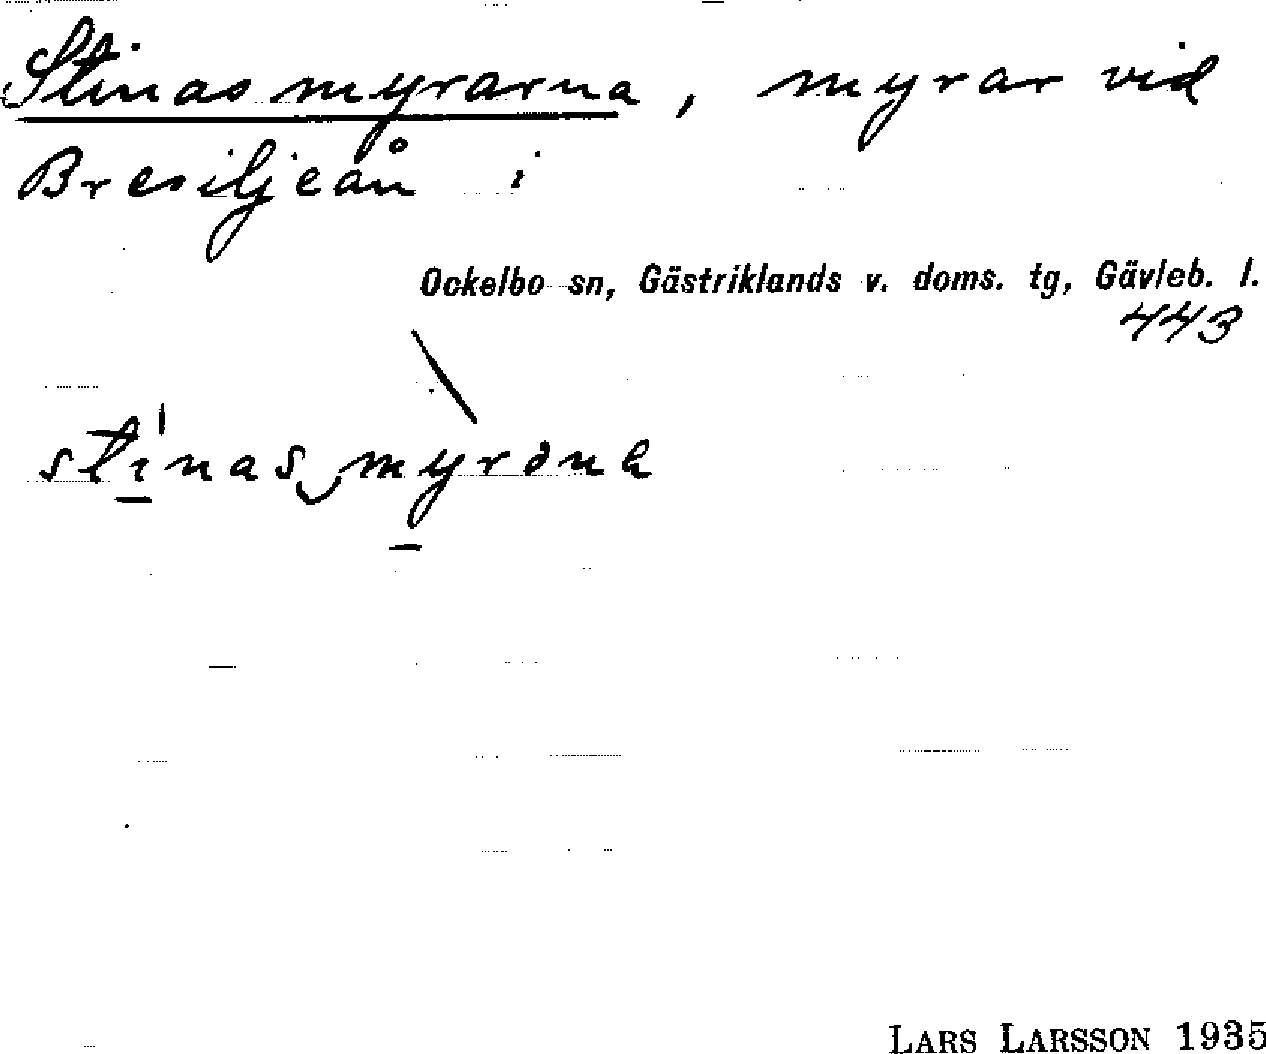 Stinasmyrarna, myrar vid
Bresiljeån i
Ockelbo sn, Gästriklands v. doms. tg, Gävleb. l.
443
stinas myrönɐ
LARS LARSSON 1935